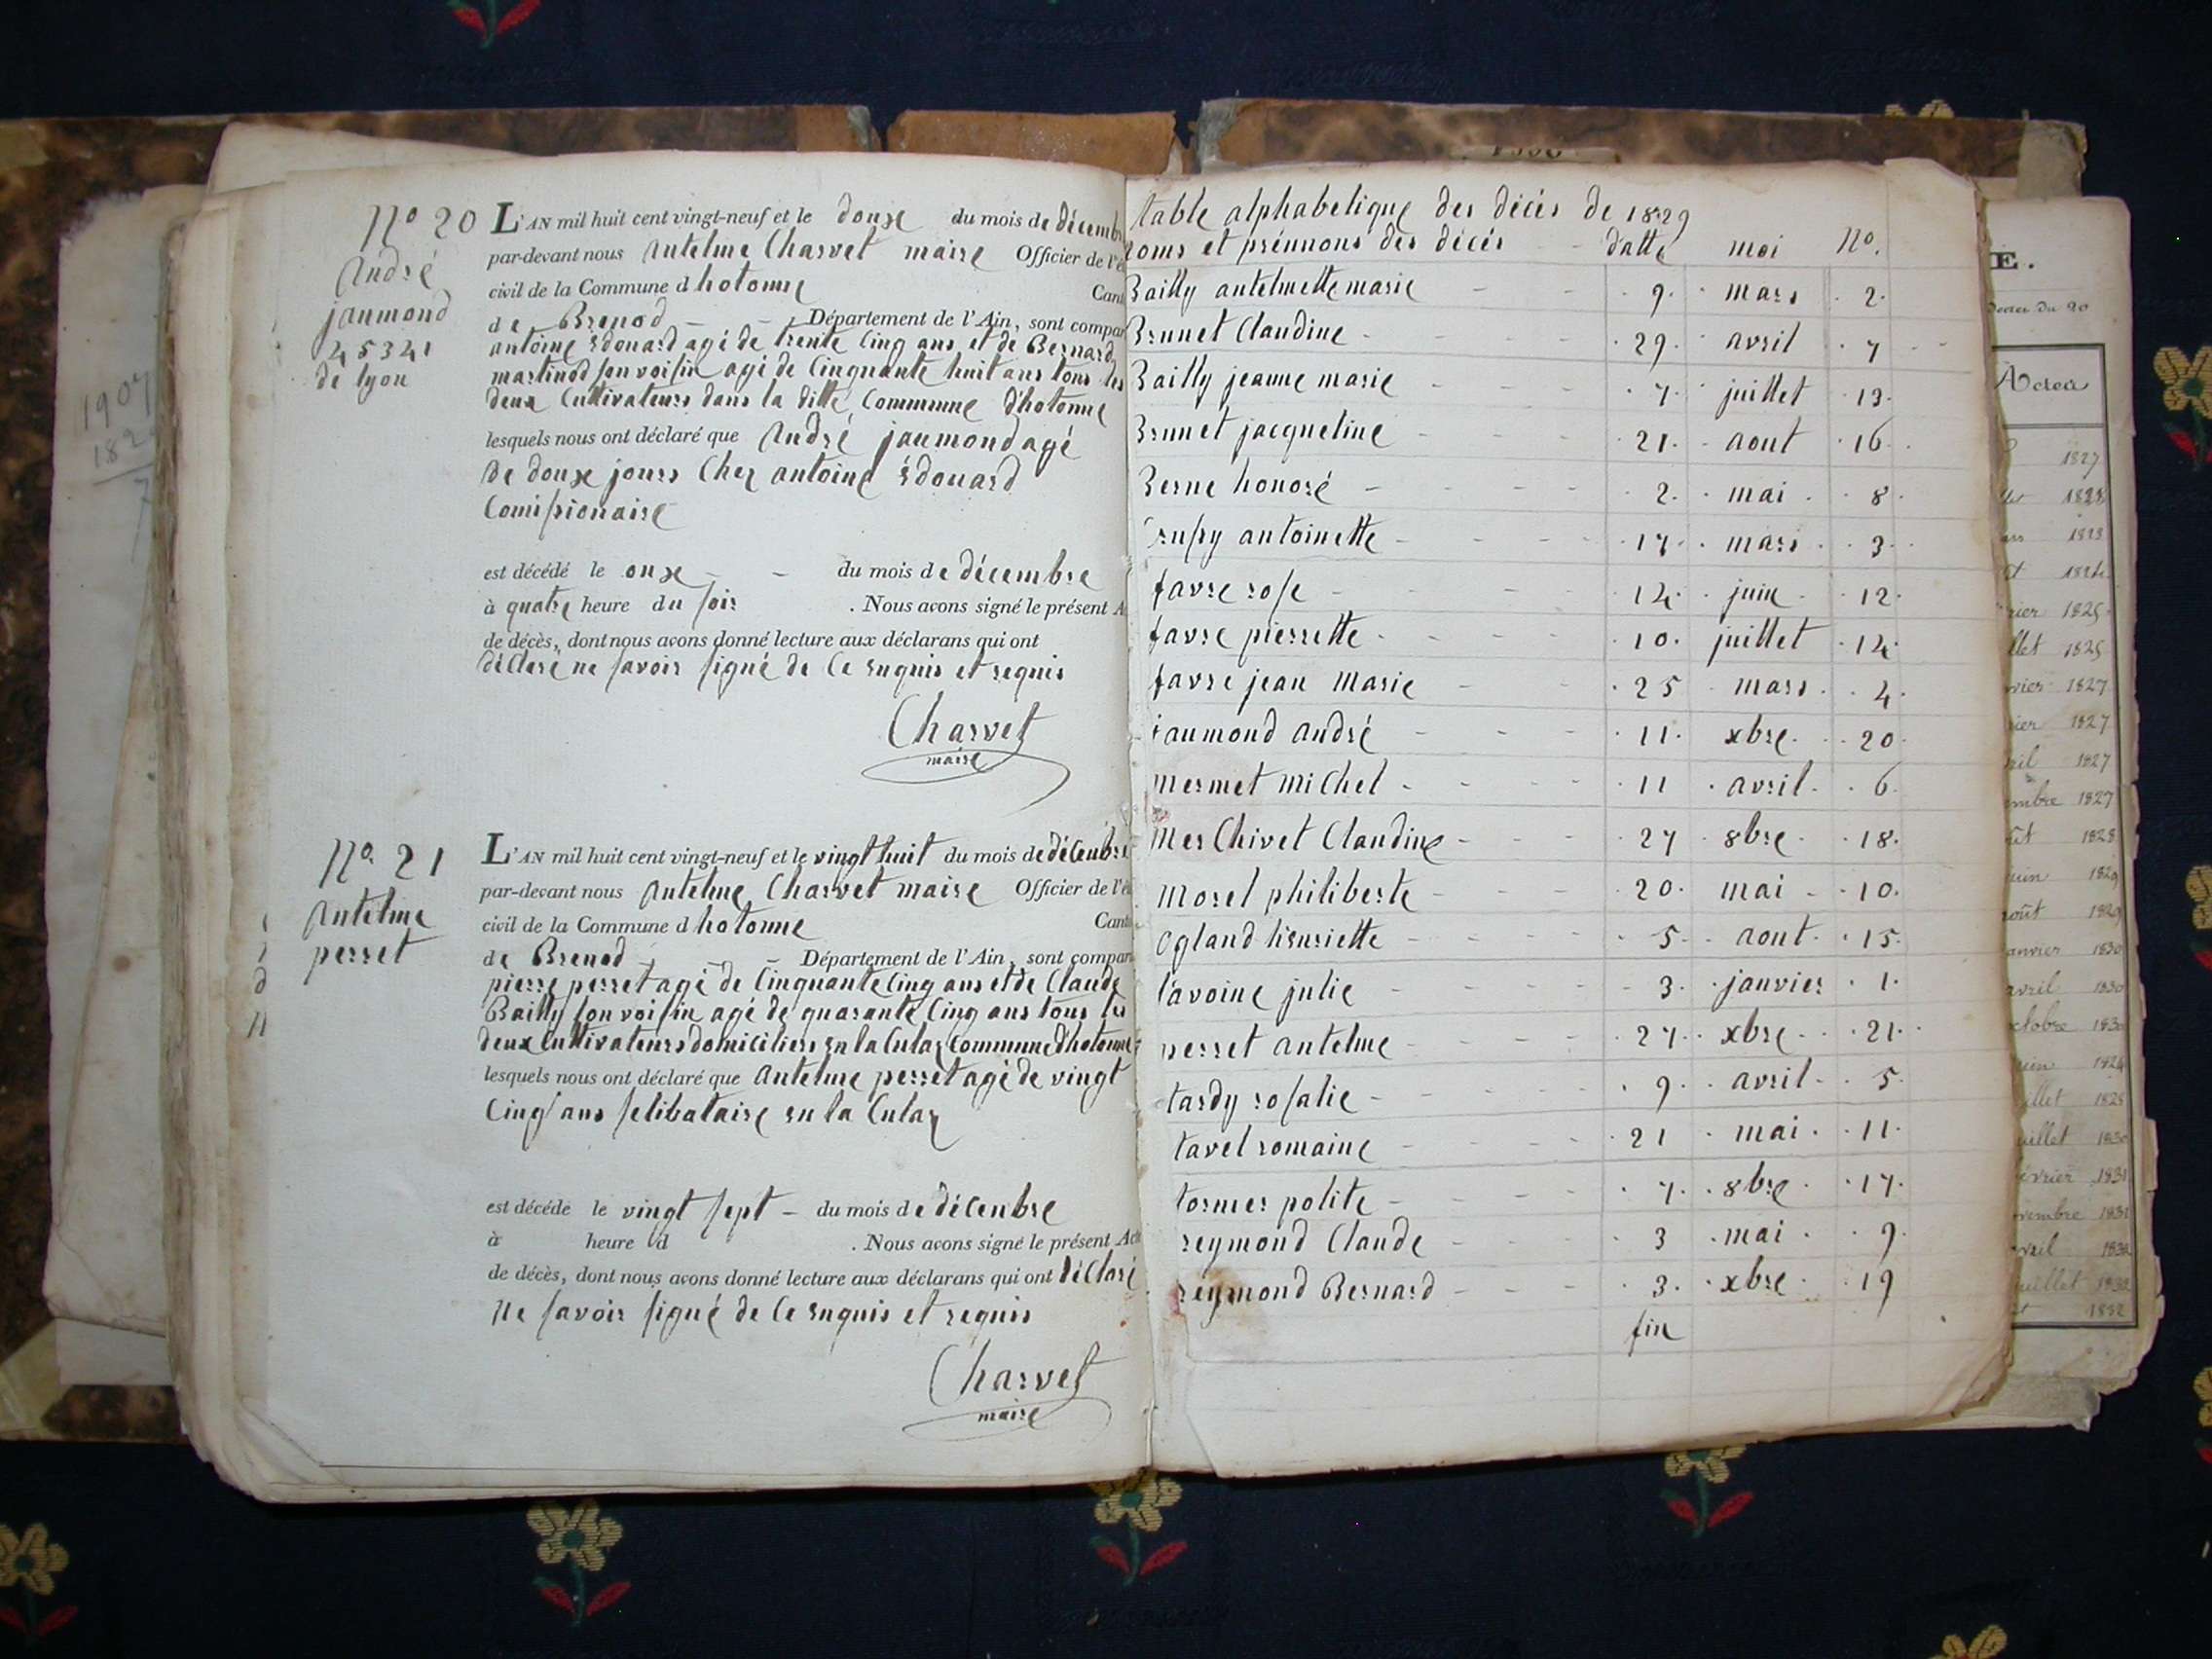 Nº 20
André
jaumond
45341
de lyon
L'AN mil huit cent vingt-neuf et le douze du mois de décemb
par-devant nous antelme Charvet maire Officier de l'é
civil de la Commune d hotonne Cant
de Brenod - - Département de l'Ain, sont compar
antoine Edouard agé de trente Cinq ans et de Bernard
martinod son voisin agé de Cinquante huit ans tous les
deux Cultivateurs dans la ditte Commune d'hotonne
lesquels nous ont déclaré que André jaumond agé
de douze jours Chez antoine Edouard
Comissionaire
est décédé le onze - - du mois de décembre
à quatre heure du soir . Nous avons signé le présent A
de décès, dont nous avons donné lecture aux déclarans qui ont
déclaré ne savoir signé de Ce enquis et requis
Charvet
maire
Nº 21
Antelme
perret
L'AN mil huit cent vingt-neuf et le vingt huit du mois de décenbre
par-devant nous antelme Charvet maire Officier de l'é
civil de la Commune d hotonne Cant
de Brenod - - Département de l'Ain, sont compar
pierre perret agé de Cinquante Cinq ans et de Claude
Bailly son voisin agé de quarante Cinq ans tous les
deux Cultivateurs domiciliers en la Culaz Commune d'hotonne
lesquels nous ont déclaré que antelme perret agé de vingt
Cinq ans selibataire en la Culaz
est décédé le vingt sept - du mois de décenbre
à heure d . Nous avons signé le présent Act
de décès, dont nous avons donné lecture aux déclarans qui ont déclaré
ne savoir signé de Ce enquis et requis
Charvet
maire
table alphabetique des décés de 1829
noms et prénnons des décés datte moi Nº.
Bailly antelmette marie - - 9. mars 2.
Brunet Claudine - - 29. avril 7
Bailly jeanne marie - - 7. juillet 13.
Brunet jacqueline - - 21. aout 16
Berne honoré - - 2. mai 8
rupy antoinette - - 17. mars 3.
favre rose - - 14. juin 12.
favre pierrette - - 10. juillet 14.
favre jean marie - - 25 mars 4.
jaumond andré - - 11. xbre. 20.
mermet michel - - 11 avril. 6.
mer Chivet Claudine - - 27 8bre 18.
morel philiberte - - 20. mai 10.
ogland henriette - - 5. aout. 15.
pavoine julie - - 3. janvier 1.
perret antelme - - 27. xbre 21.
tardy rosalie - - 9. avril 5.
tavel romaine - - 21 mai 11.
tormer polite - - 7. 8bre 17.
reymond Claude - - 3 mai 9.
reymond Bernard - - 3. xbre 19
fin
1907
E.
Actes
1827
1828
1823
1824
1825
llet 1825
vrier 1827
rier 1827
ril 1827
embre 1827
ût 1828
uin 1829
août 1829
janvier 1830
avril 1830
octobre 1830
uin 1824
uillet 1828
uillet 1830
février 1831
ovembre 1831
avril 1832
juillet 1832
1832